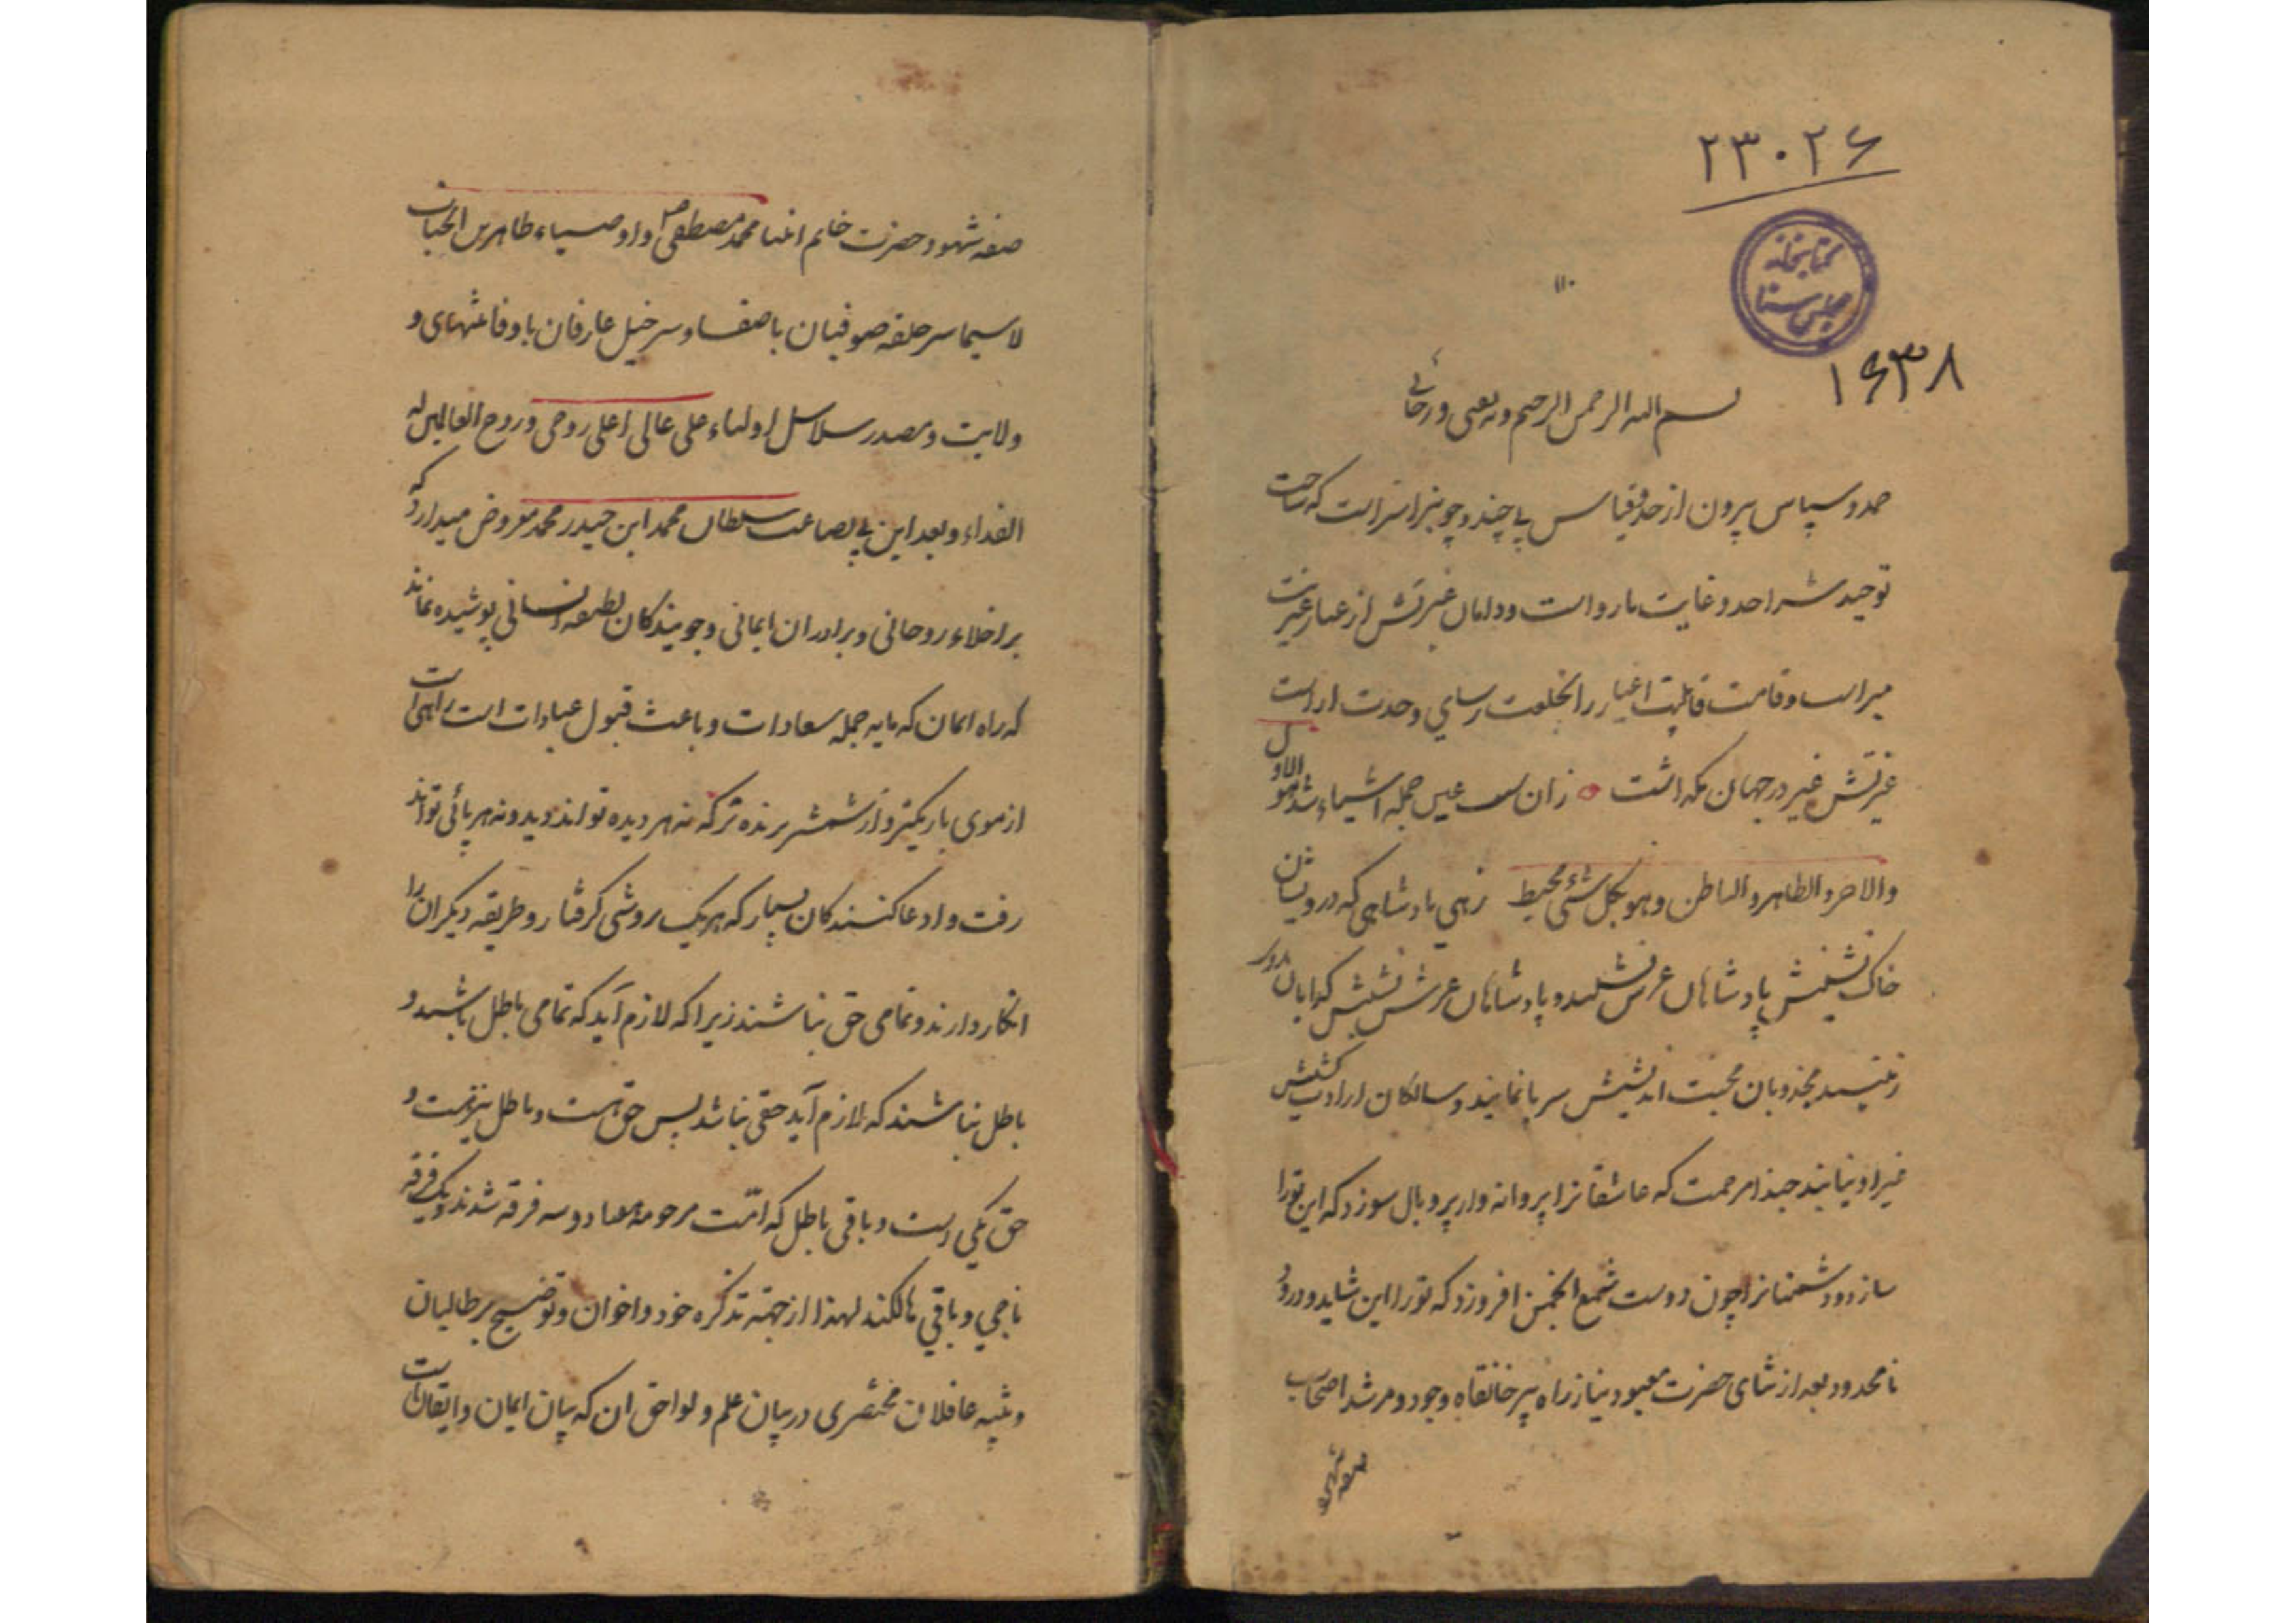 ۲۳۰۲۶
کتابخانه
مجلس سنا
۱۶۳۸
۱۱۰
بسم الله الرحمن الرحیم وبه ثقتی ورجائی
حمد و سپاس بیرون از حد قیاس بی چند و چونیرا سزاست که ساحت
توحیدش را حد و غایت ناروا است و دامان غیرتش از غبار غیریت
مبراست و قامت قابلیت اغیار را بخلعت رسای وحدت اراست
غیرتش غیر در جهان نگذاشت زان سبب عین جمله اشیاء شد هو الاول
والاخر والظاهر والباطن وهو بکل شئ محیط زهی پادشاهی که درویشان
خاک نشینش پادشاهان عرش نشیند و پادشاهان عرش نشینش کدایان
مجذوبان محبت اندیشش سر بپا نمایند و سالکان ارادت کشش
غیر او نیابند حبذا مرحمت که عاشقانرا پروانه وار پر و بال سوزد که این تورا
سازد و دشمنانرا چون دوست شمع انجمن افروزد که تورا این شاید و درود
نامحدود بعد از ثنای حضرت معبود بنیاز راه پیر خانقاه وجود و مرشد اصحاب
صفه شهود
صفه شهود حضرت خاتم انبیا محمد مصطفی ص و اوصیاء طاهرین انجناب
لاسیما سرحلقه صوفیان باصفا و سرخیل عارفان باوفا منتهای و
ولایت و مصدر سلاسل اولیاء علی عالی اعلی روحی و روح العالمین له
الفداء و بعد این بی بضاعت سلطان محمد ابن حیدر محمد معروض میدارد که
بر اخلاء روحانی و برادران ایمانی و جویندکان لطیفه انسانی پوشیده نماند
که راه ایمان که مایه جمله سعادات و باعث قبول عبادات است راهی است
از موی باریکتر و از شمشیر برنده تر که نه هر دیده تواند دید و نه هر پائی تواند
رفت و ادعا کنندکان بسیار که هر یک بروشی کرفتار و طریقه دیکران را
انکار دارند و تمامی حق نباشند زیرا که لازم آید که تمامی باطل باشند و
باطل نباشند که لازم آید حقی نباشد پس حق هست و باطل نیز هست و
حق یکی است و باقی باطل که امت مرحومه هفتاد و سه فرقه شدند و یک فرقه
ناجی و باقی هالکند لهذا از جهته تذکره خود و اخوان و توضیح بر طالبان
و تنبیه غافلان مختصری در بیان علم و لواحق ان که بیان ایمان و ایقان است